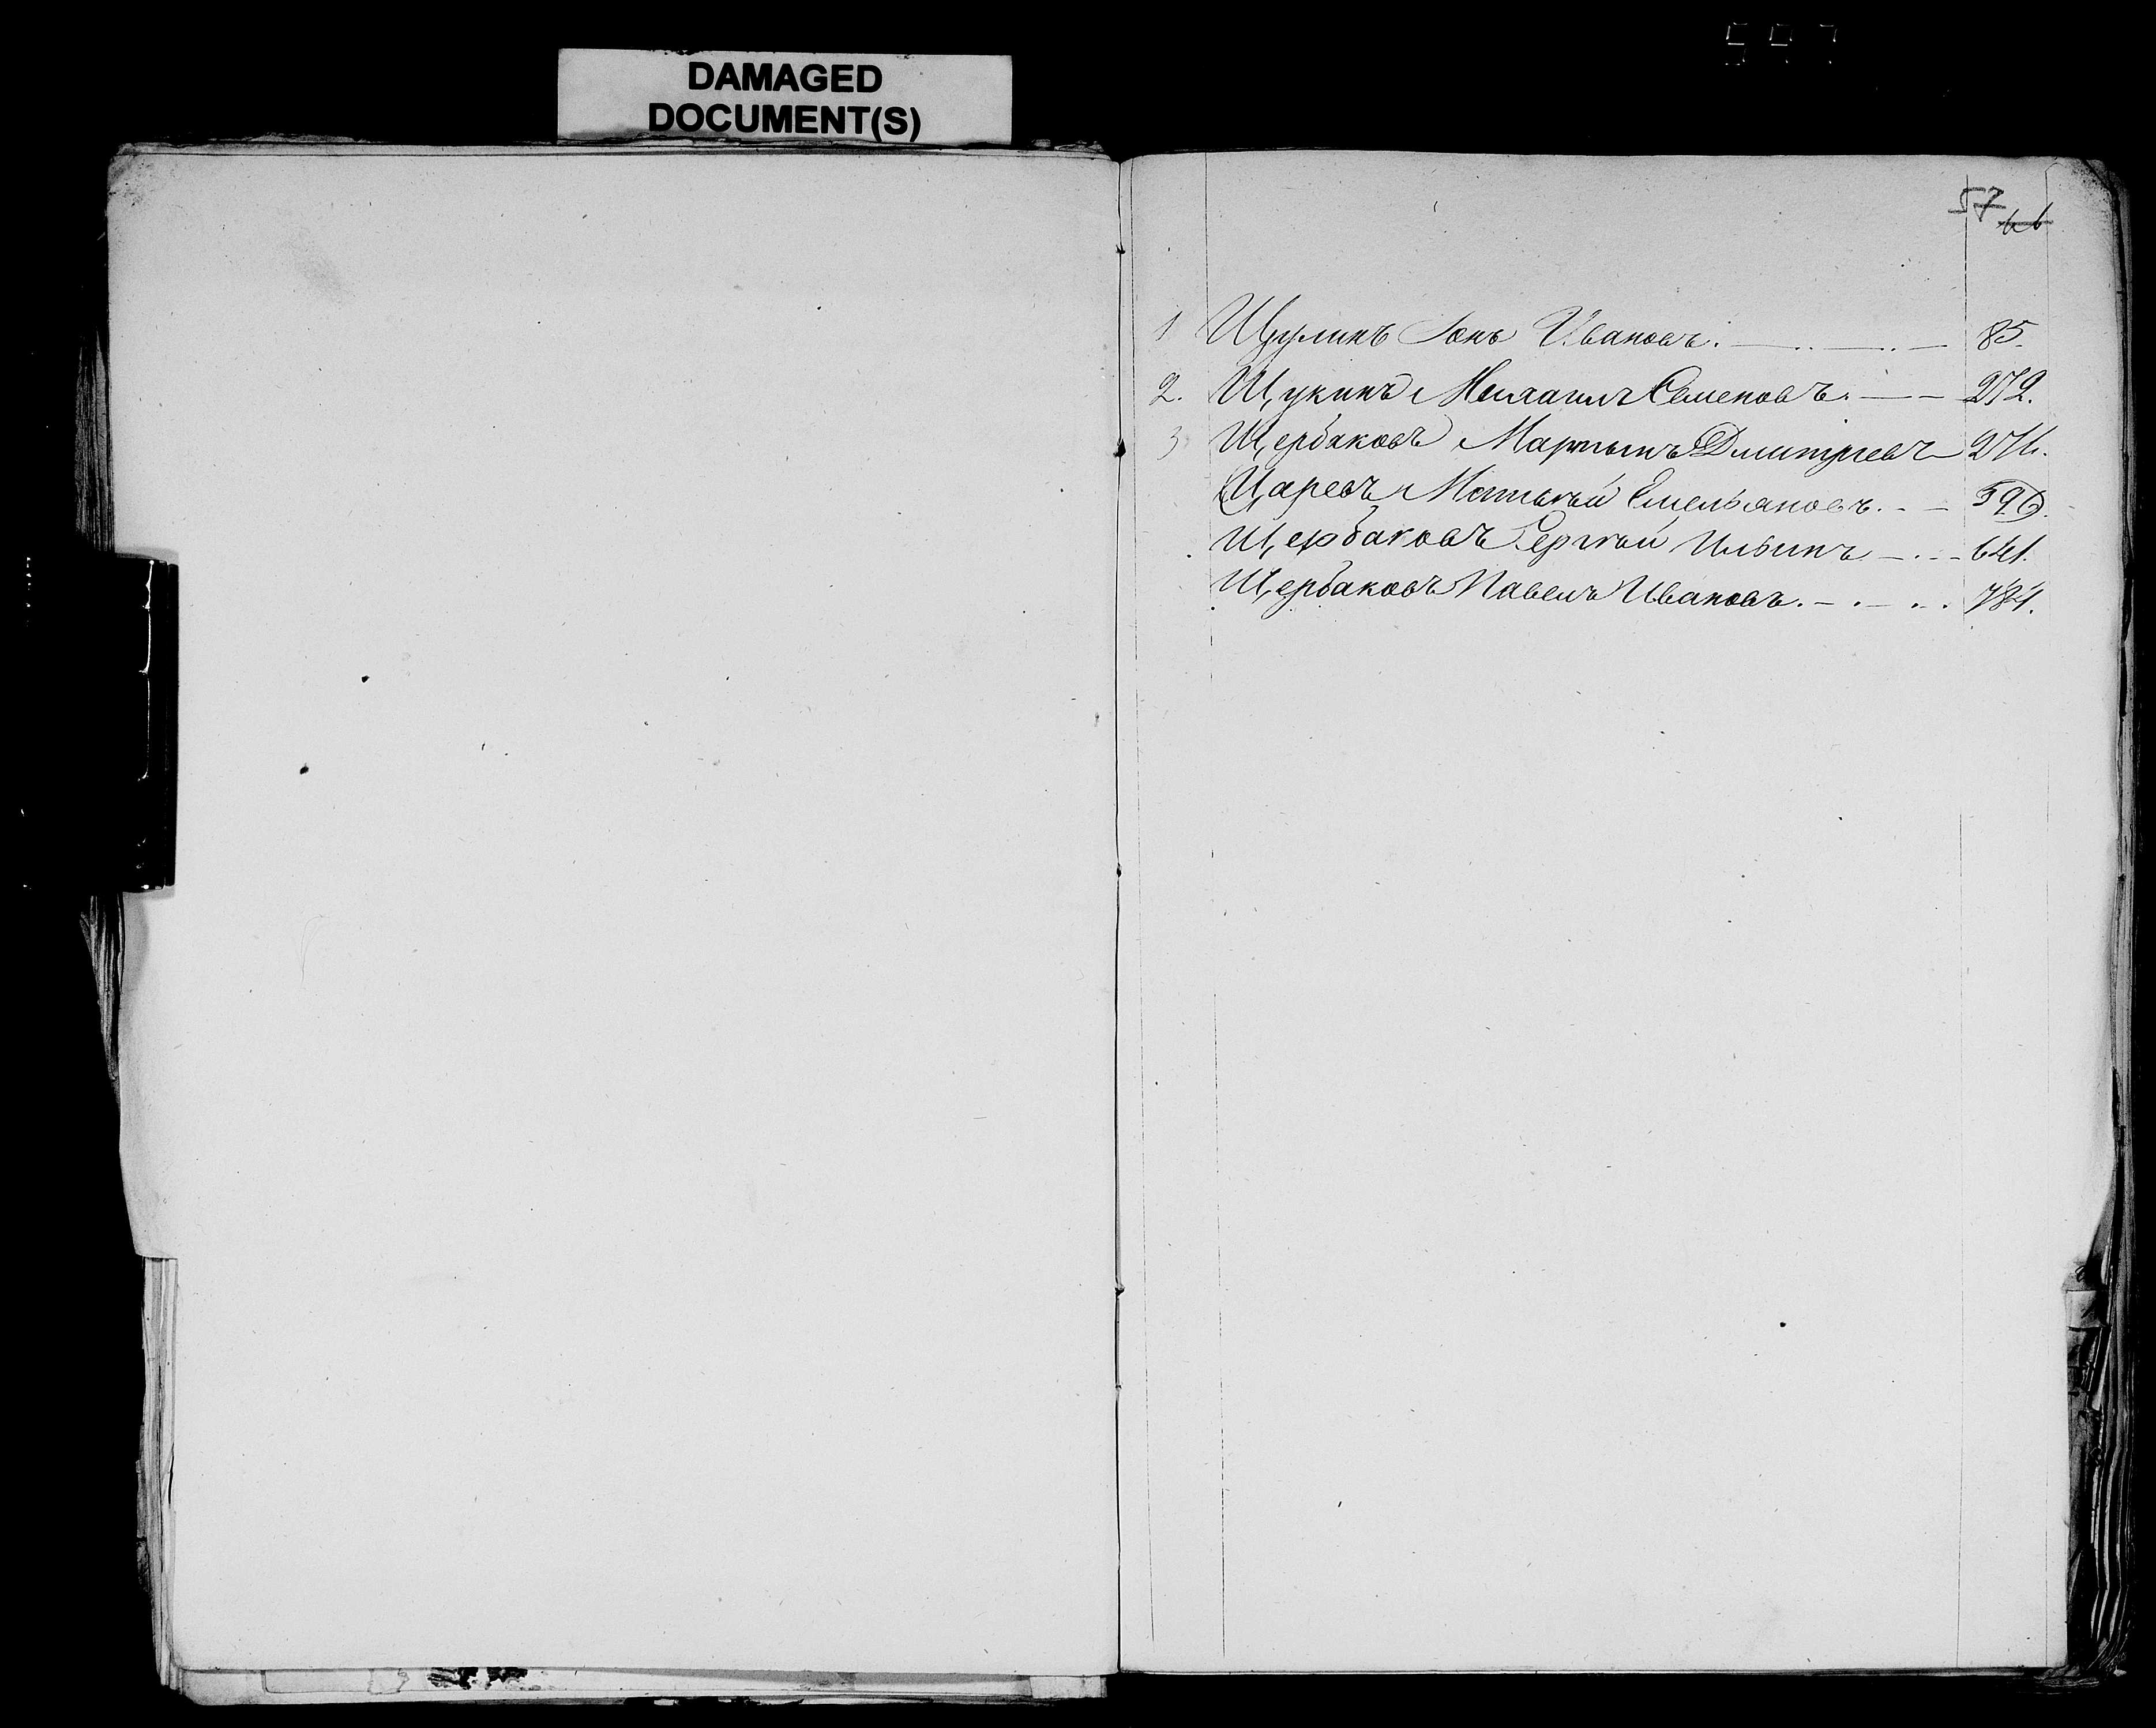 DAMAGED
DOCUMENT(S)
57 66
1 Щулинъ Іонъ Ивановъ. 85.
2. Щукинъ Михаилъ Семеновъ. 272.
3 Щербаковъ Мартынъ Дмитріевъ 274.
Царевъ Матвѣй Емельяновъ. 596.
Щербаковъ Сергѣй Ильинъ 641.
Щербаковъ Павелъ Ивановъ. 784.